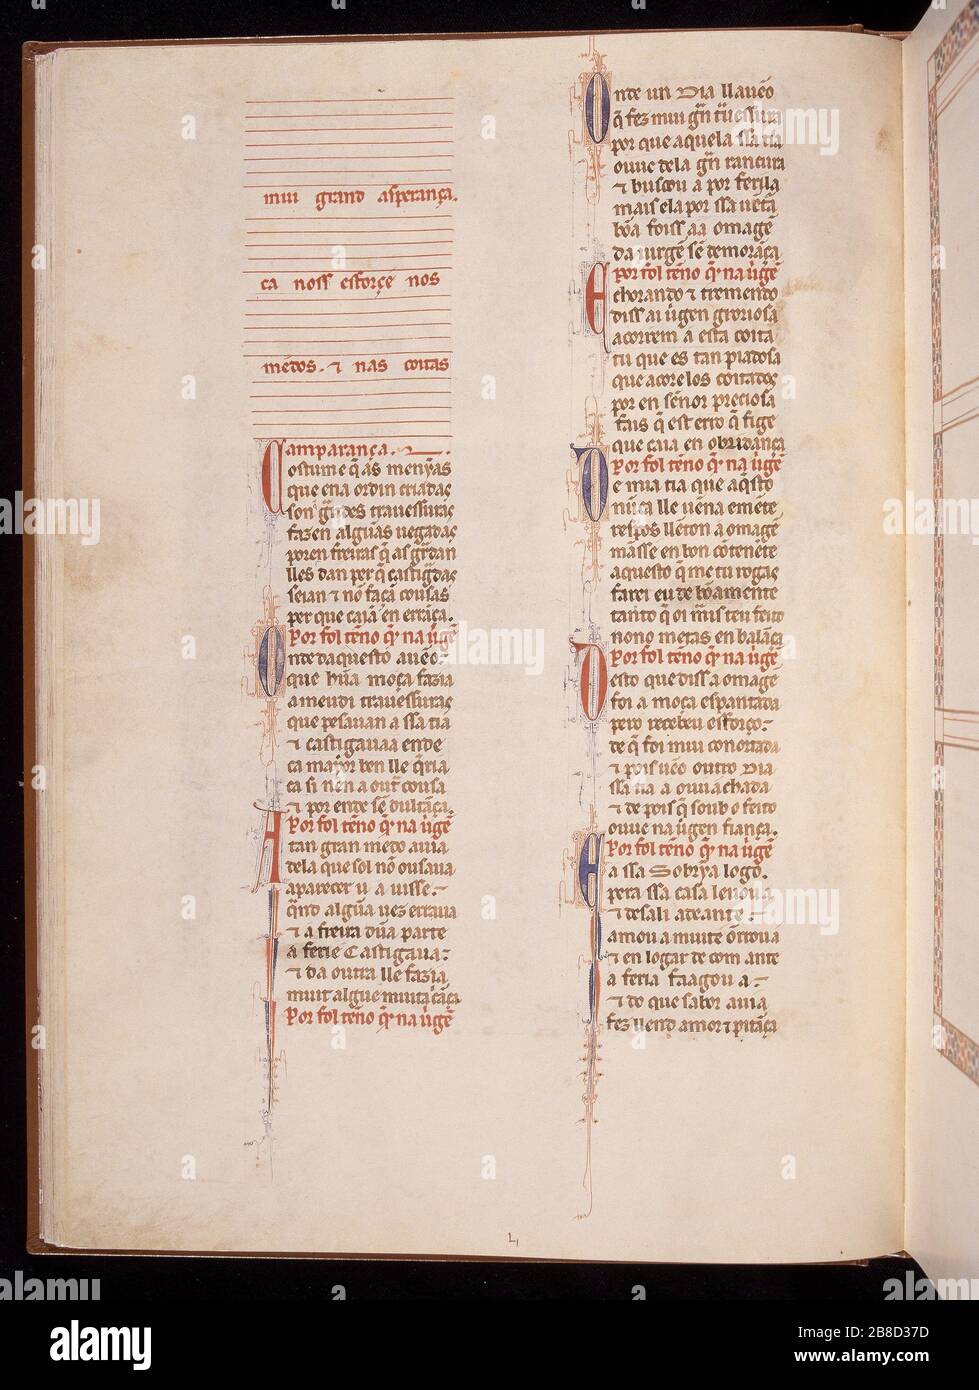 mui grand asperança.
ca noss esforçe nos
mẽdos. ⁊ nas coitas
amparança.
Costume q̃ as menỹas
que ena ordin criadas
son g̃ndes trauessuras
fazen algũas uegadas
poren freiras q̃ as g̃rdan
lles dan per q̃ castigadas
seian ⁊ nõ façã cousas
per que caiã en errãça.
Por fol tẽno q̃ na uirgẽ
Onde daquesto auẽo.
que hũa moça fazia
a meudi trauessuras
que pesauan a ssa tia
⁊ castigauaa ende
ca mayor ben lle q̃ria
ca si nen a out̃ cousa
⁊ por ende sẽ dultãça.
Por fol tẽno q̃ na uirgẽ
A tan gran mẽdo auia
dela que sol nõ ousaua
aparecer u a uisse.
q̃nd algũa uez erraua
⁊ a freira dũa parte
a ferie castigaua.
⁊ da outra lle fazia
muit algue muita
Por fol tẽno q̃ na uirgẽ
Onde un dia ll auẽo
q̃ fez mui g̃n t̃uessura
por que aquela ssa tia
ouue dela g̃n rancura
⁊ buscou a por ferila
mais ela por ssa uẽt̃a
bõa foiss aa omagẽ
da uirgẽ sẽ demorãça
Por fol tẽno q̃ na uirgẽ
E chorando ⁊ tremendo
diss ai uirgen groriosa
acorrem a esta coita
tu que es tan piadosa
que acorelos coitados
por en señor preciosa
fais q̃ est erro q̃ fige
que caia en obridança
Por fol tẽno q̃ na uirgẽ
De mia tia que aq̃sto
nũca lle uẽna emẽte
respos lle ton a omagẽ
mãsse en bon cõtenẽte
aquesto q̃ me tu rogas
farei eu de bõamente
tanto q̃ o mais teu feito
nono metas en balãça
Por fol tẽno q̃ na uirgẽ
Desto que diss a omagẽ
foi a moça espantada
pero recebeu esforço.
de q̃ foi mui conortada
⁊ pois uẽo outro dia
ssa tia a ouu achada
⁊ de pois q̃ soub o feito
ouue na uirgen fiança.
Por fol tẽno q̃ na uirgẽ
E a ssa sobrỹa logo.
pera ssa casa leuoua
⁊ desali adeante.
amou a muit e õrroua
⁊ en logar de com ante
a feria faagou a.
⁊ do que sabor auia
fez llend amor ⁊ pitãça